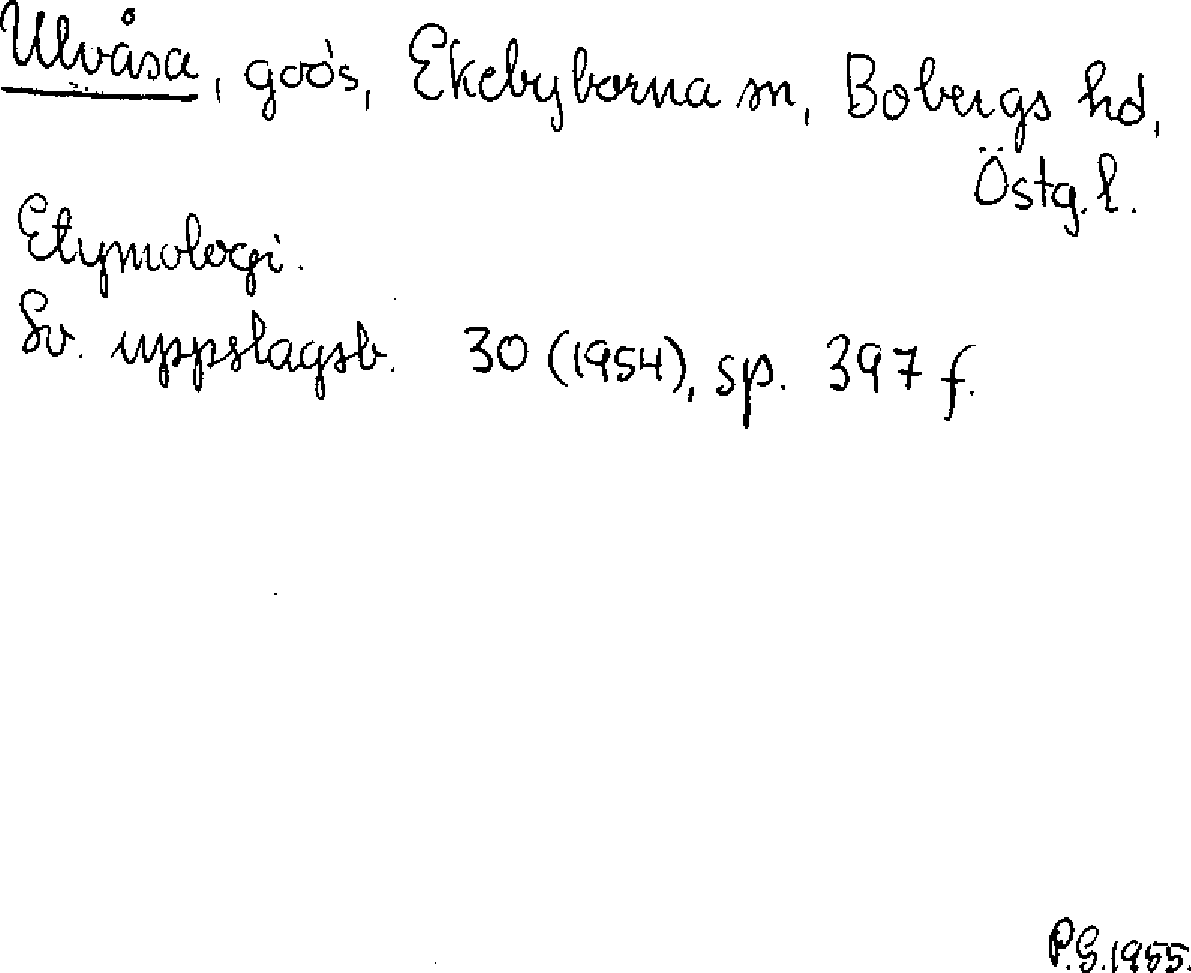 Ulvåsa, gods, Ekebyborna sn, Bobergs hd,
Östg. l.
Etymologi.
Sv. uppslagsb. 30 (1954), sp. 397 f.
P.G. 1955.